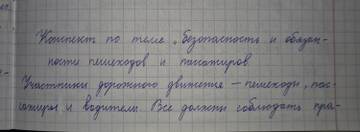 Конспект по теме „Безопасность и обязан-
ности пешеходов и пассажиров
Участники дорожного движение – пешеходы, пас-
сажиры и водители. Все должны соблюдать пра-